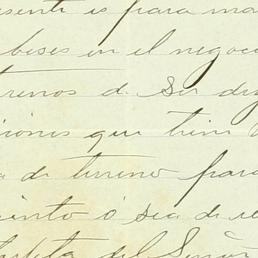 esente es para ma
beses en el negoc
trenos de Ser de
ciones que tiene
a de terreno para
iento ó sea de re
tapeta del Señor